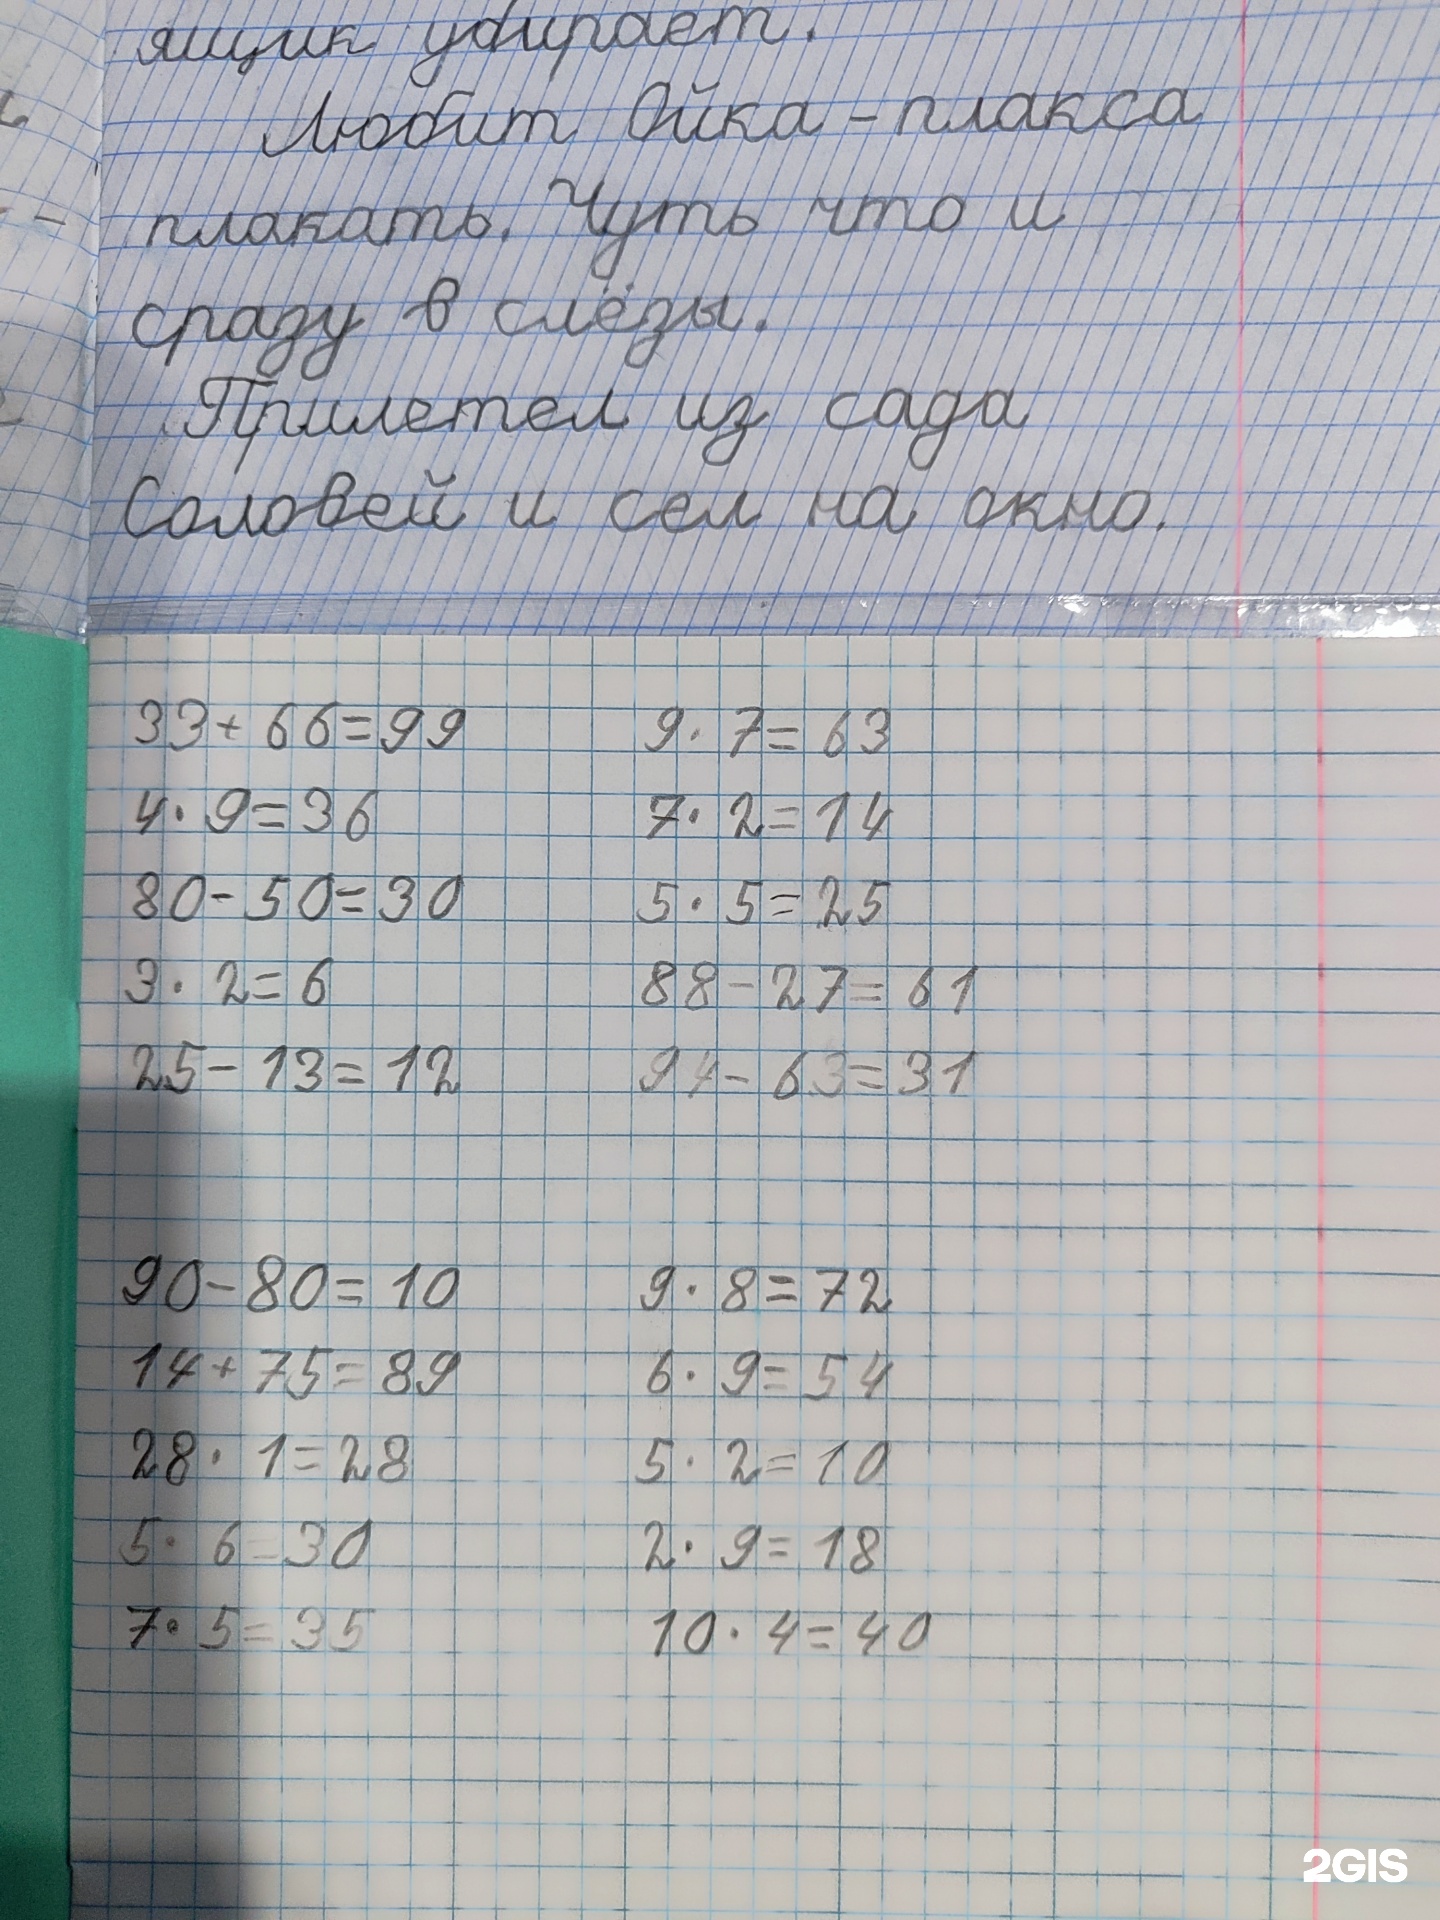 ящик убирает.
Любит Ойка-плакса
плакать. Чуть что и
сразу в слёзы.
Прилетел из сада
Соловей и сел на окно.
33+66=99
4·9=36
80-50=30
3·2=6
25-13=12
9·7=63
7·2=14
5·5=25
88-27=61
94-63=31
90-80=10
14+75=89
28·1=28
5·6=30
7·5=35
9·8=72
6·9=54
5·2=10
2·9=18
10·4=40
2GIS